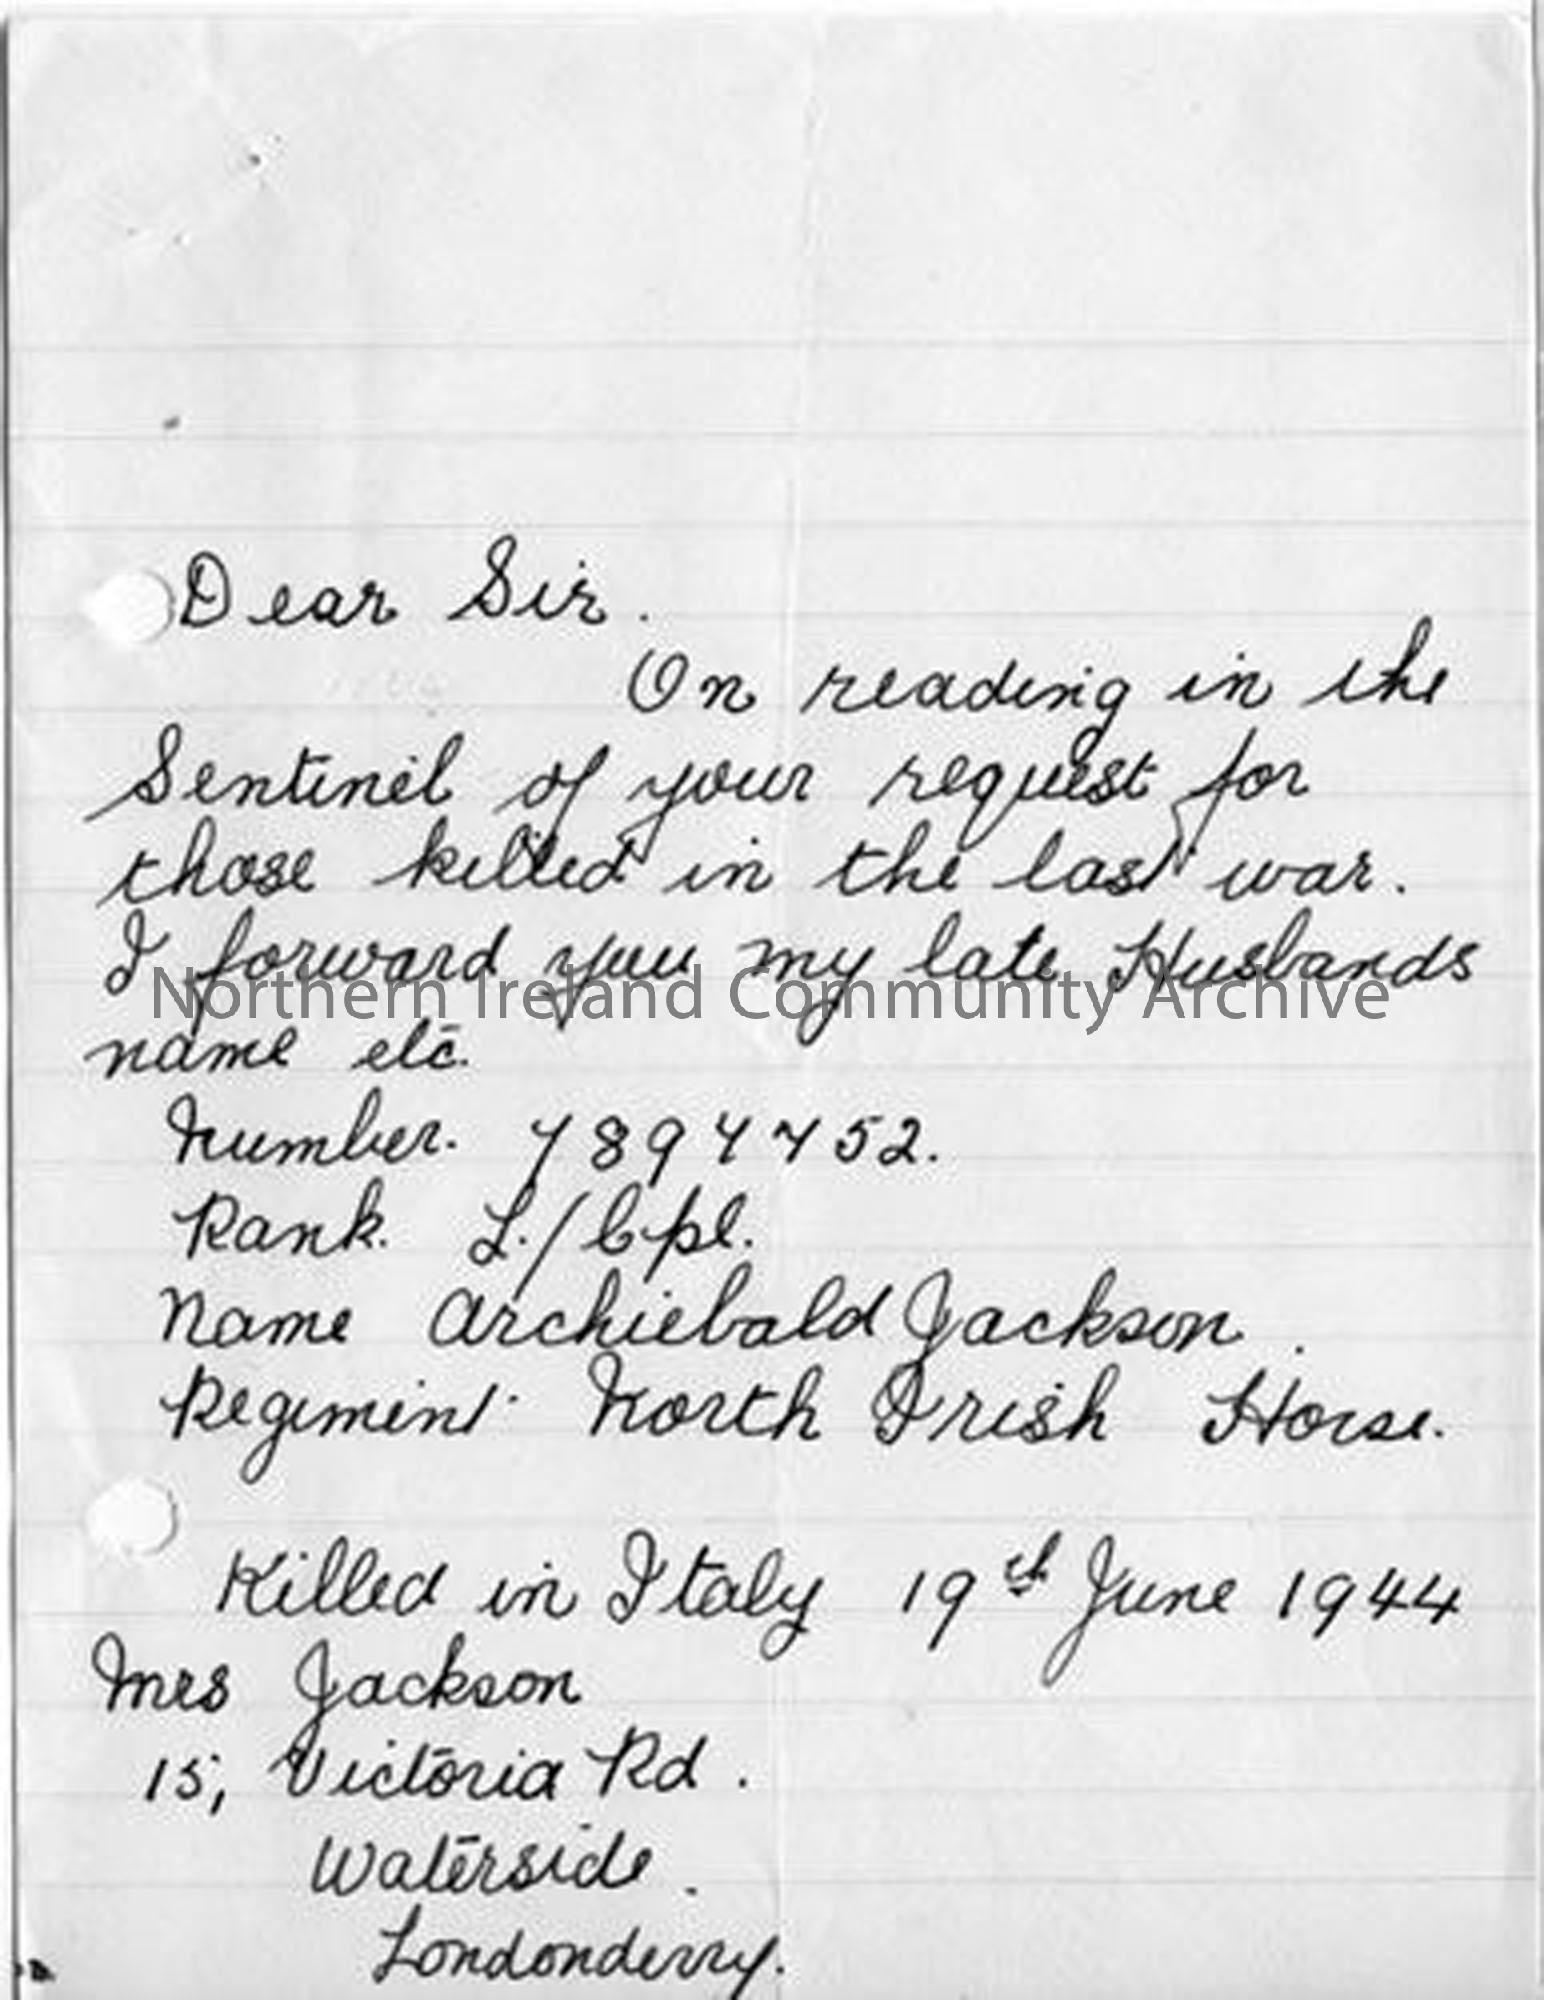 Dear Sir.
On reading in the
Sentinel of your request for
those killed in the last war.
I forward you my late Husbands
Northern Ireland Community Archive
name etc.
Number. 7894752.
Rank. L./Cpl.
Name Archiebald Jackson.
Regiment. North Irish Horse.
Killed in Italy 19th June 1944
Mrs Jackson
15, Victoria Rd.
Waterside.
Londonderry.